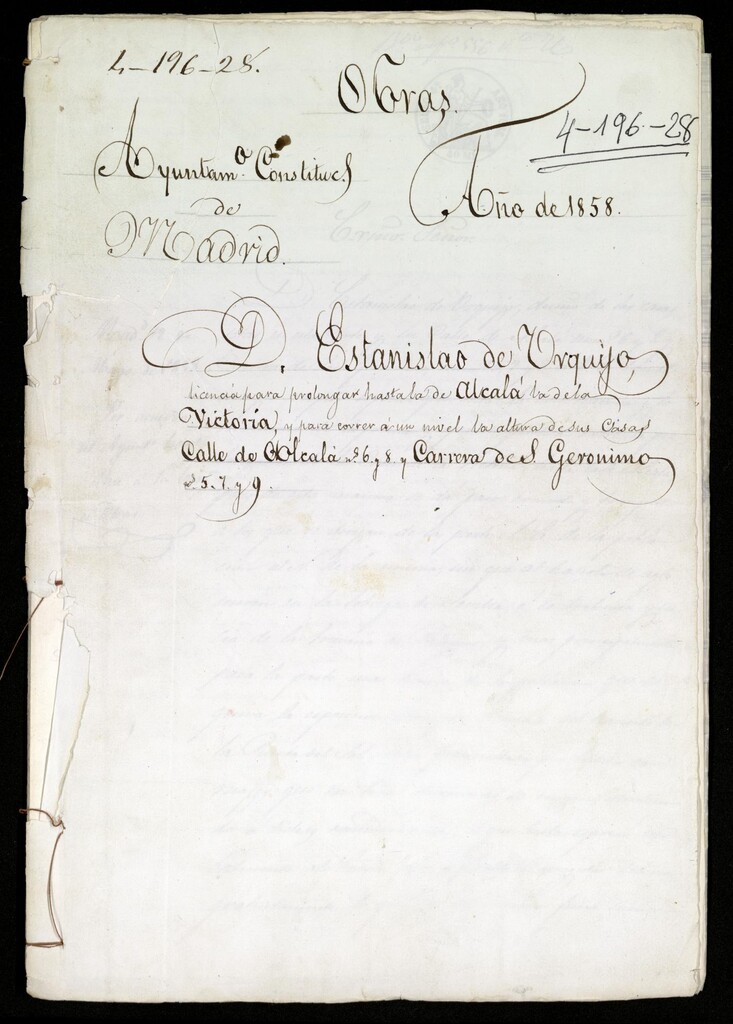 4-196-28.
Obras.
4-196-28
Ayuntam.º Constituc.l
Año de 1858.
de
Madrid.
D. Estanislao de Urquijo,
licencia para prolongar hasta la de Alcalá la de la
Victoria, y para correr á un nivel la altura de sus Casas
Calle de Alcalá n.s 6. y 8. y Carrera de S. Geronimo
n.s 5. 7. y 9.